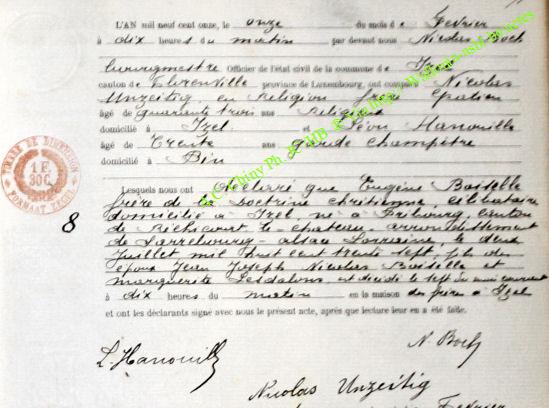 L'AN mil neuf cent onze, le onze du mois de Fevrier
à dix heures du matin par devant nous Nicolas Boch
bourgmestre Officier de l'état civil de la commune de Izel
canton de Florenville province de Luxembourg, ont comparu Nicolas
Unzeitig en Religion frère
âgé de quarante trois ans Religieux
domicilié à Izel et Léon Hanouille
âgé de Trente ans garde champêtre
domicilié à Pin
Lesquels nous ont déclaré que Eugène Bastelle
frère de la doctrine chrétienne, célibataire
domicilié à Izel, né à Fribourg, canton
de Réchicourt le chateau, arrondissement
de Sarrebourg - alsace Lorraine, le deux
Juillet mil huit cent trente sept, fils des
époux Jean Joseph Nicolas Bastelle et
marguerite est décédé le sept du mois courant
à dix heures du matin en la maison des frères à Izel
et ont les déclarants signé avec nous le présent acte, après que lecture leur en a été faite.
8
TIMBRE DE DIMENSION
1 F.
30C.
L. Hanouille
N. Boch
Nicolas Unzeitig
Fevrier